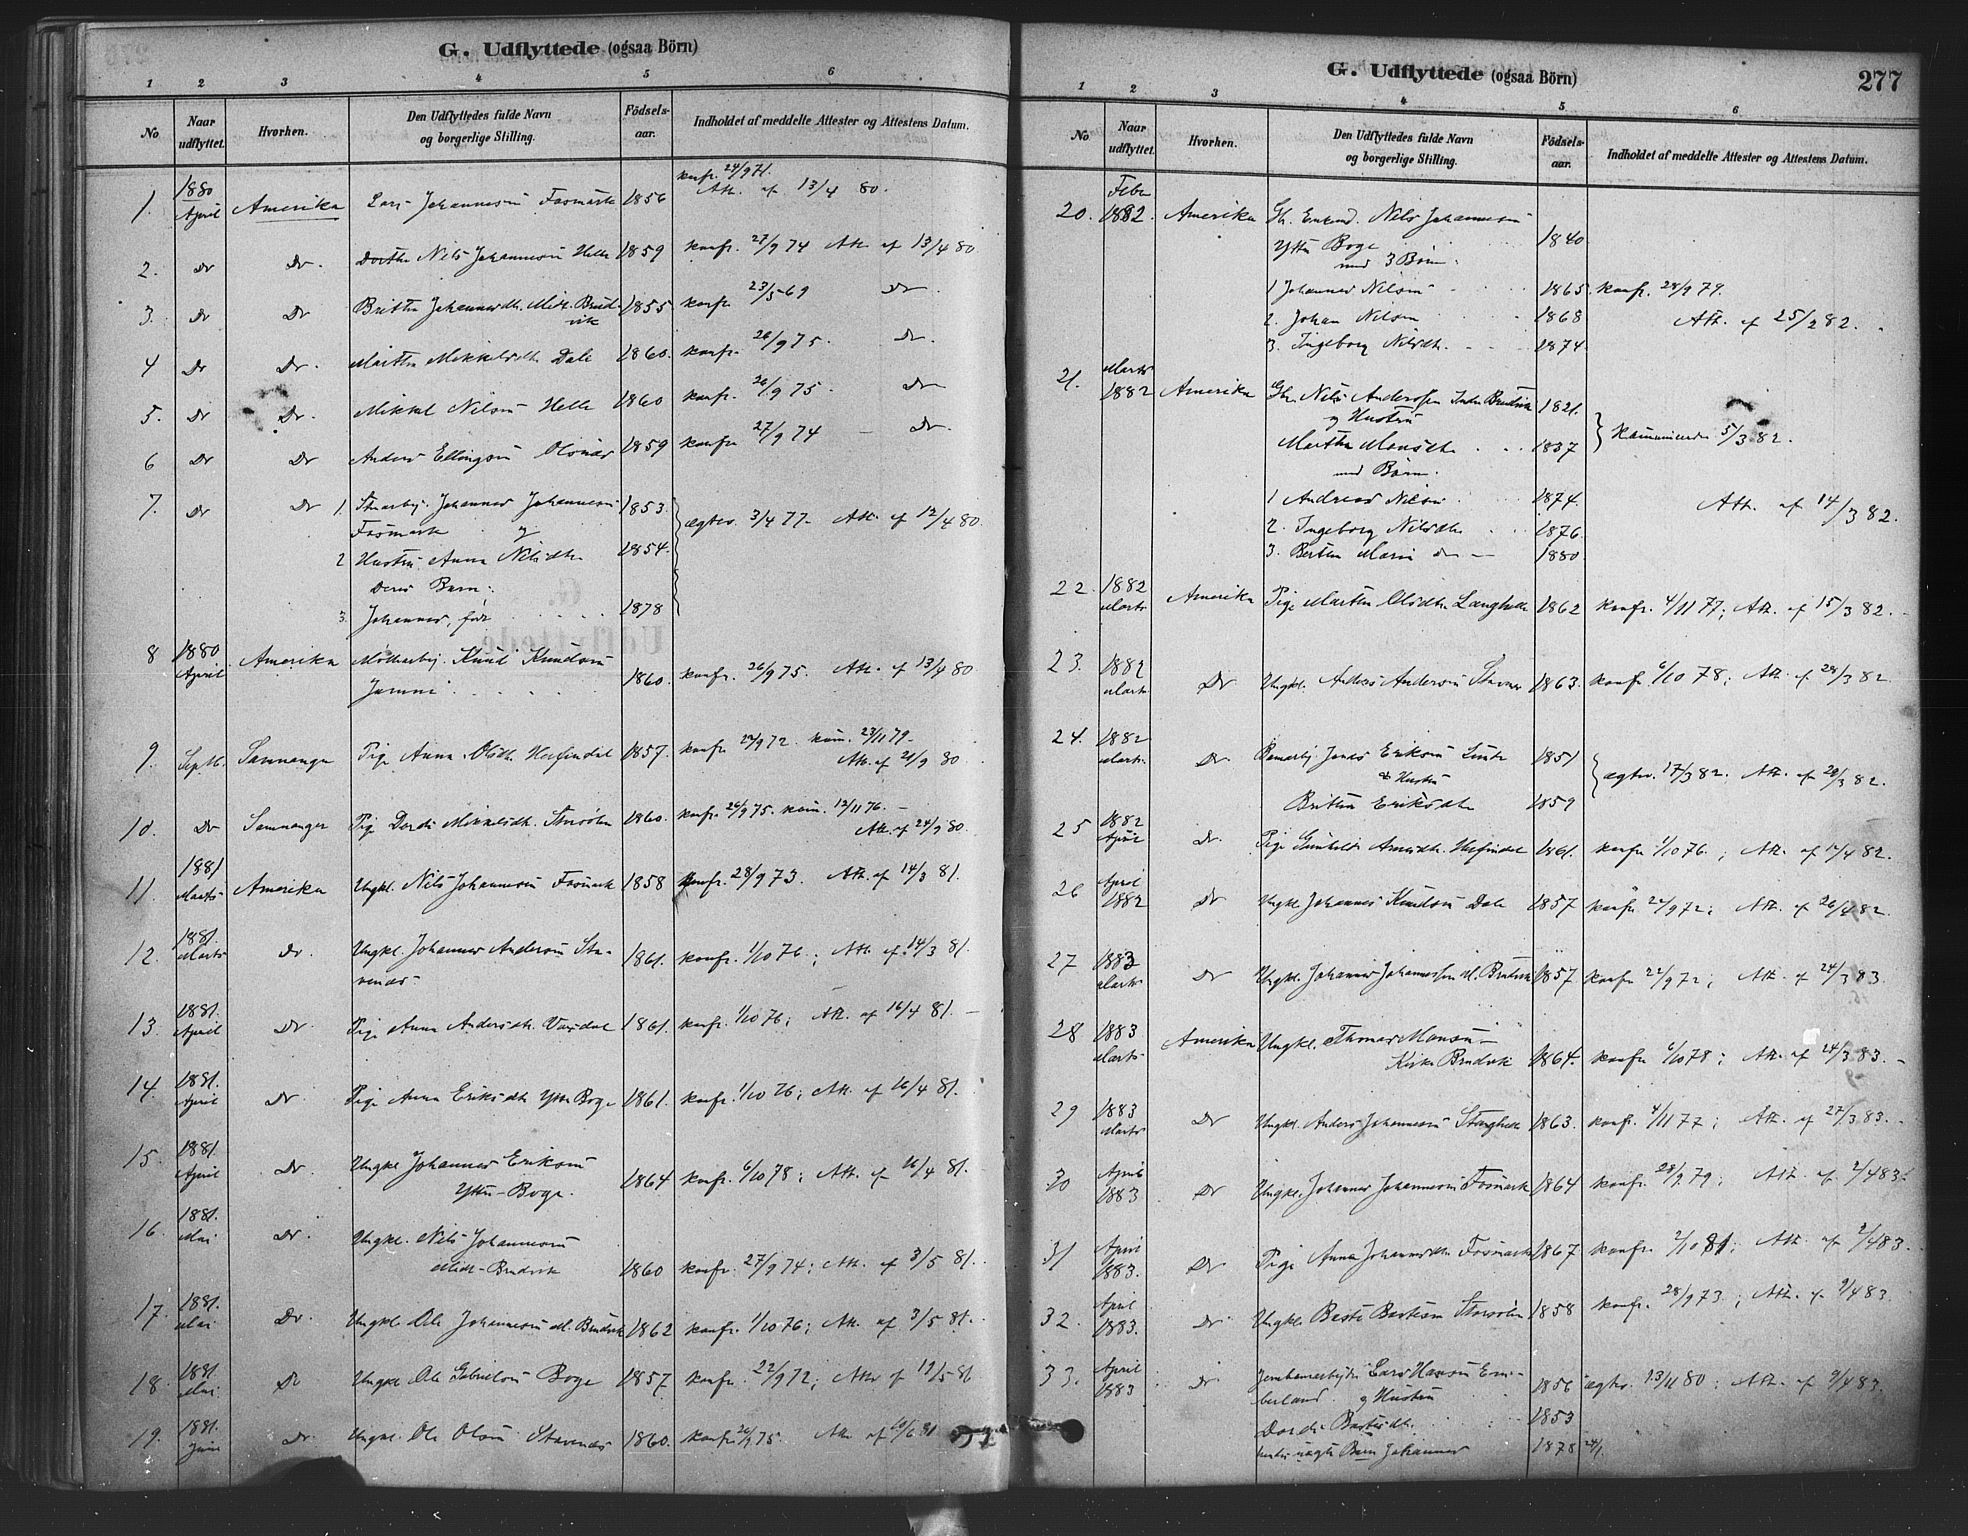 G. Udflyttede (ogsaa Börn)
1 2 3 4 5 6
No Naar udflyttet. Hvorhen. Den Udflyttedes fulde Navn og borgerlige Stilling. Födsels-aar. Indholdet af meddelte Attester og Attestens Datum.
1. 1880 April Amerika Lars Johannesen Fosmark 1856 konfr. 24/9 71. Att. af 13/4 80.
2. Do Do. Nils Johannesen Helle 1859 konfr. 27/9 74 Att. af 13/4 80
3. Do Do Brittha Johannesdtr. Midt. Brudvik 1855 konfr 23/5 69 Do
4 Do Do. Martha Mikkelsdtr. Dale 1860. konfr. 26/9 75. Do.
5. Do Do. Mikkel Nilsen Helle 1860 konfr. 26/9 75 Do
6 Do Do Anders Ellingsen 1859 konfr 27/9 74 Do.
7. Do Do 1. Johannes Johannesen 1853.
Fosmark og
2 Hustru Anna Nilsdtr 1854.
ægtev. 3/4 77. Att. af 12/4 80.
Deres Barn:
3. Johannes, født 1878
8 1880 April Amerika Knud Knudsen
1860. konfr. 26/9 75. Att. af 13/4 80
9. Septb. Samnanger Pige Anna Olsdtr. Herfindal 1857. konfr 22/9 72. kom. 23/11 79.
Att. af 21/9 80
10. Do Samnanger Pige Dordi Mikkelsdtr. Storsölen 1860. konfr. 26/9 75. kom. 12/11 76.
Att. af 24/9 80.
11. 1881 Marts Amerika Ungkl. Nils Johannesen Fosmark 1858 konfr. 28/9 73. Att. af 14/3 81.
12. 1881. Marts Do. Ungkl. Johannes Andersen Sta-
venæs. 1861. konfr. 1/10 76; Att. af 14/3 81.
13. 1881. April Do. Pige Anna Andersdtr. Vaxdal 1861. konfr. 1/10 76; Att. af 16/4 81.
14. 1881. April Do Pige Anna Eriksdtr. Yttre Boge 1861. konfr. 1/10 76; Att. af 16/4 81.
15. 1881. April Do. Ungkl Johannes Eriksen
Yttre-Boge. 1864 konfr. 6/10 78; Att. af 16/4 81.
16. 1881. Mai Do. Ungkl. Nils Johannesen
Midt-Brudvik 1860 konfr. 27/9 74; Att. af 3/5 81.
17. 1881. Mai Do. Ungkl Ole Johannesen M. Brudvik 1862 konfr. 1/10 76; Att. af 3/5 81.
18. 1881. Mai. Do Ungkl Ole Gabrielsen Boge 1857 konfr. 22/9 72; Att. af 12/5 81
19. 1881. Juni Do. Ungkl. Ole Olsen Stavenæs 1860. konfr 26/9 75. Att. af 10/6 81
G. Udflyttede (ogsaa Börn) 277
1 2 3 4 5 6
No Naar udflyttet. Hvorhen. Den Udflyttedes fulde Navn og borgerlige Stilling. Födsels-aar. Indholdet af meddelte Attester og Attestens Datum.
20. Febr 1882. Amerika Gb. Enkemd. Nils Johannesen
Yttre Boge 1840
med 3 Börn.
1 Johannes Nilsen 1865. konfr. 28/9 79.
2. Johan Nilsen 1868 Att. af 25/2 82.
3. Ingeborg Nilsdtr. 1874.
21. Marts 1882 Amerika Gbr. Nils Anderssen Indre Brudvik 1821.
og Hustru
Martha Monsdtr. 1837 kommunicerede 5/3 82.
med Börn.
1 Andreas Nilsen 1874. Att. af 14/3 82.
2. Ingeborg Nilsdtr 1876.
3. Berthe Marie do 1880
22. 1882 Marts Amerika Pige Martha Olsdtr. Langhelle 1862 konfr. 4/11 77; Att. af 15/3 82.
23. 1882 Marts Do Ungkl. Anders Andersen 1863. konfr. 6/10 78; Att. af 28/3 82.
24. 1882 Marts Do. Jonas Eriksen 1851
& Hustru ægtev. 17/3 82. Att. af 29/3 82.
Britha Eriksdtr 1859
25 1882 April Do. Pige Gunhild Arnesdtr. Herfindal 1861. konfr 1/10 76; Att. af 17/4 82.
26 April 1882 Do Ungkl Johannes Knudsen Dale 1857 konfr 22/9 72; Att. af 26/4 82.
27 1883 Marts Do Ungkl. Johannes Johannessen M. Brudvik 1857 konfr 22/9 72; Att. af 24/3 83.
28 1883 Marts Amerika Ungkl. Thomas Monsen
Kirke Brudvik 1864. konfr 6/10 78; Att. af 24/3 83.
29 1883 Marts Do Ungkl. Anders Johannesen Stanghelle 1863. konfr. 4/11 77; Att. af 27/3 83.
30 April 1883 Do Ungkl. Johannes Johannesen Fosmark 1864 konfr. 28/9 79; Att. af 2/4 83.
31 April 1883. Do Pige Anna Johannesdtr Fosmark 1867 konfr. 2/10 81; Att. af 2/4 83.
32. April 1883. Do Ungkl. Baste Bastesen Storsölen 1858 konfr. 28/9 73.; Att. af 9/4 83.
33. April 1883 Do Jernbanearbejder Lars Hansen Em-
berland. og Hustru 1856 ægtev. 13/11 80; Att. af 9/4 83.
Dordi Bastesdtr. 1853
Barn Johannes 1878 24/1.